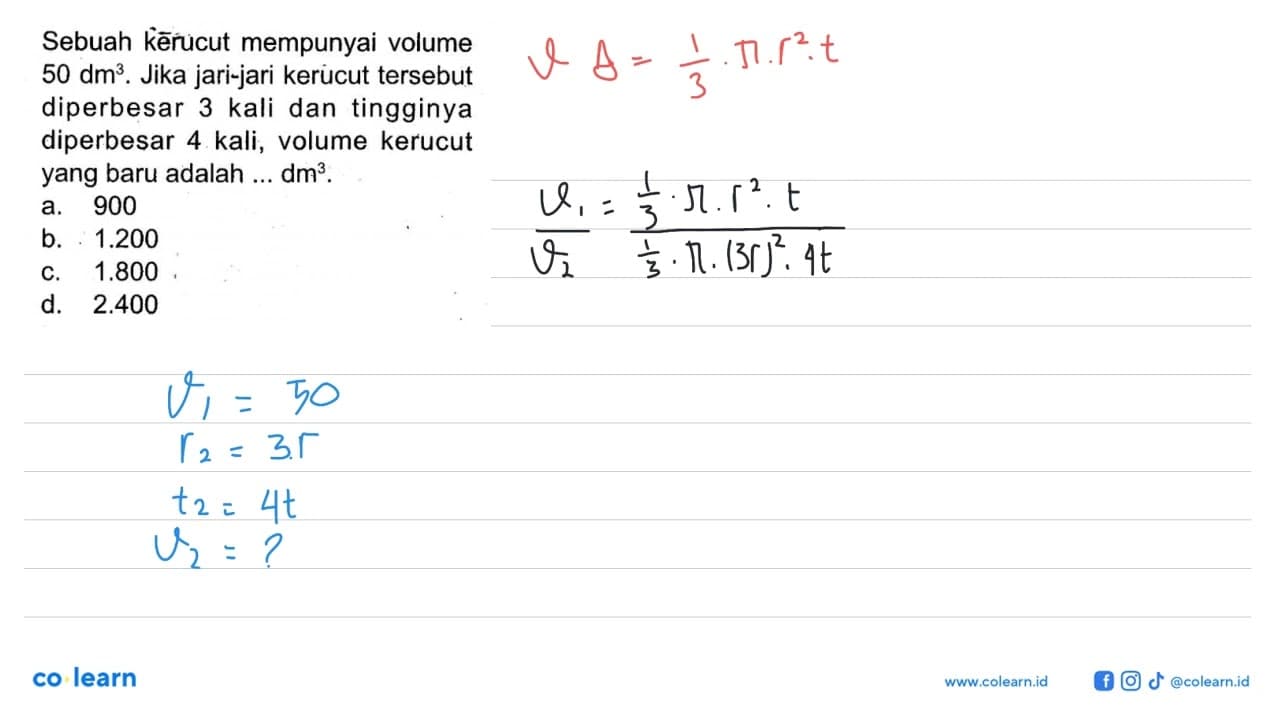 Sebuah kerucut mempunyai volume
50 dm³. Jika jari-jari kerucut tersebut
diperbesar 3 kali dan tingginya
diperbesar 4 kali, volume kerucut
yang baru adalah ... dm³.
a. 900
b. 1.200
c. 1.800
d. 2.400
V Δ = 1/3 . π . r² . t
V₁/V₂ = (1/3 . π . r² . t)/(1/3 . π . (3r)² . 4t)
V₁ = 50
r₂ = 3.r
t₂ = 4t
V₂ = ?
co learn
www.colearn.id
@colearn.id